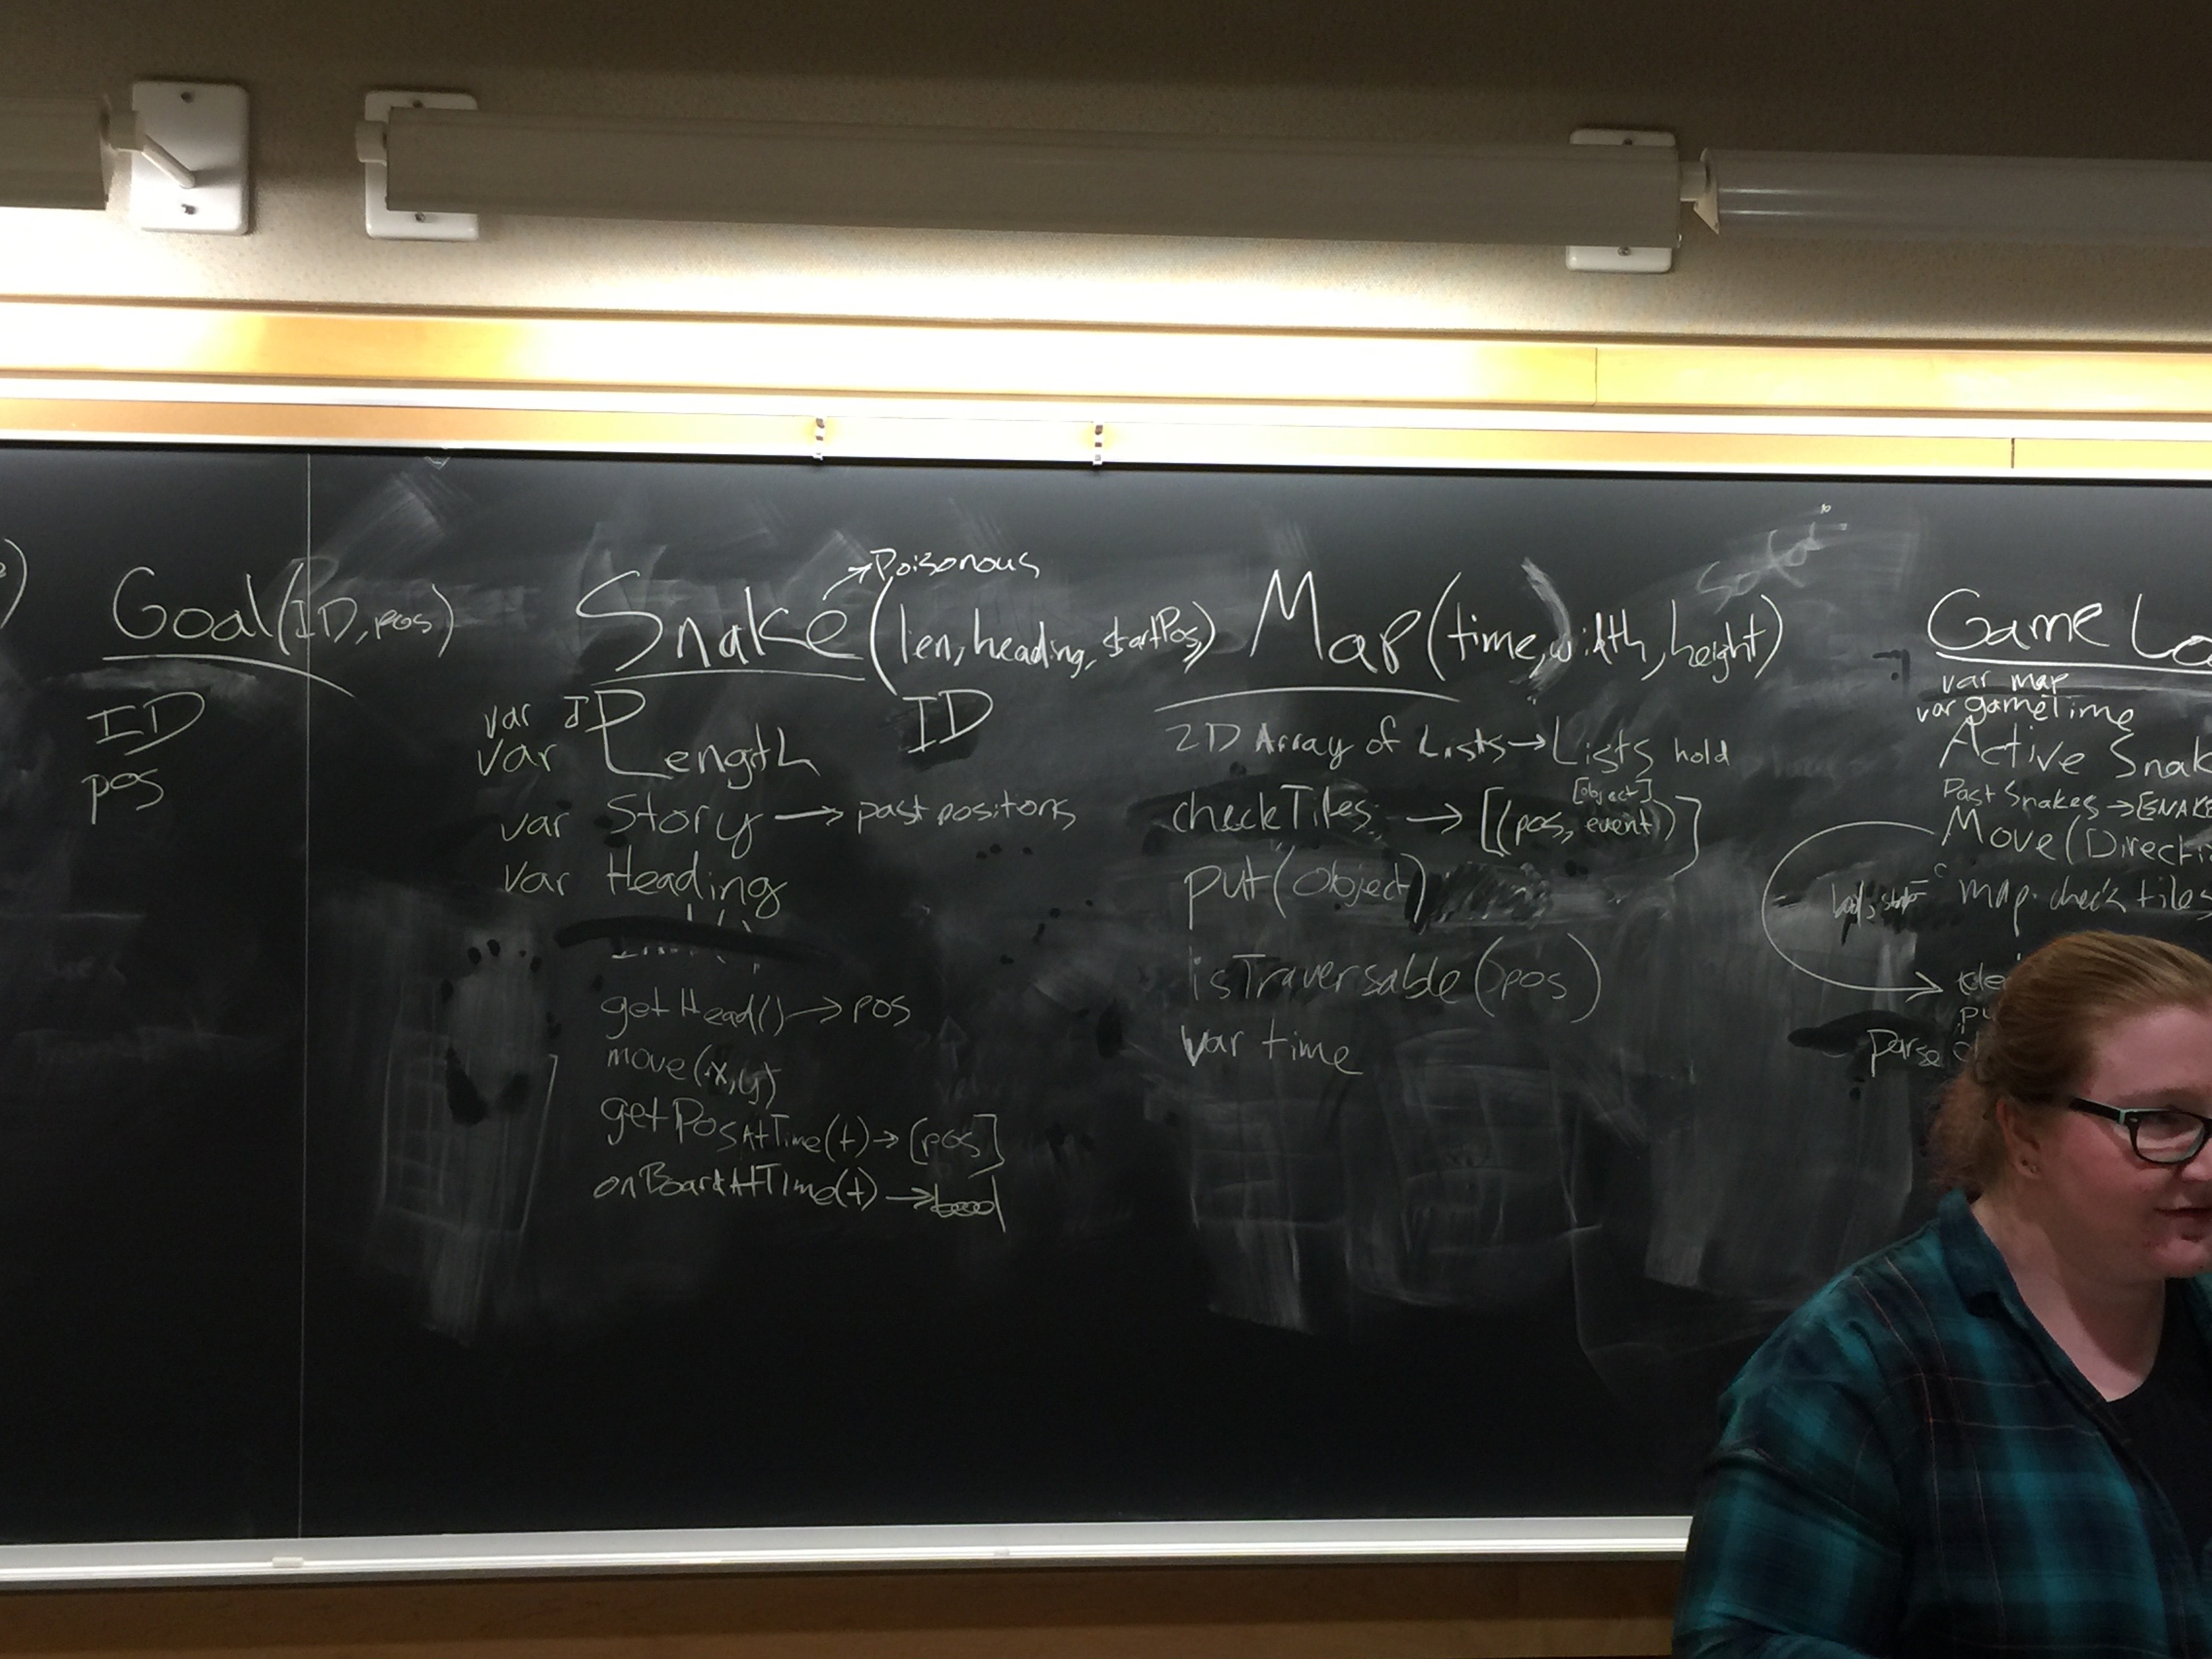 Goal(ID, pos)
ID
pos
Poisonous
Snake(len, heading, startPos)
ID
var ID
var Length
var Story → past positions
var Heading
getHead() → pos
move(x,y)
getPosAtTime(t) → [pos]
onBoardAtTime(t) → bool
Map(time, width, height)
2D Array of Lists → Lists hold
[object]
checkTiles → [(pos, event)]
put(Object)
isTraversable(pos)
var time
Game Lo
var map
var gameTime
Active Snak
Past Snakes → [SNAKE
Move(Directi
map.check tiles
parse